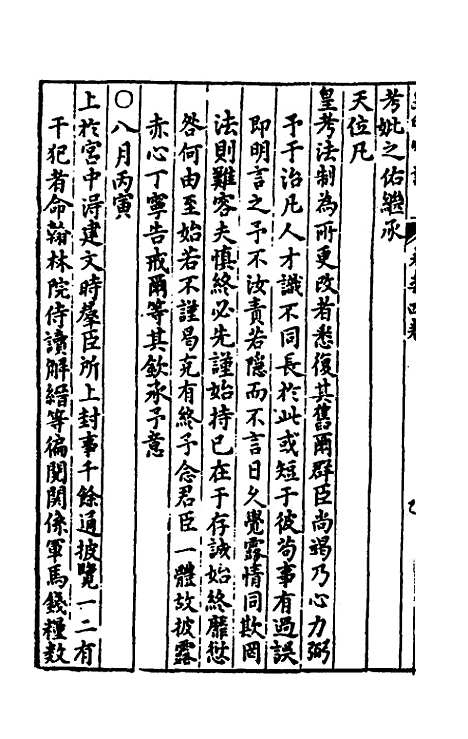 考妣之佑繼承
天位凡
皇考法制為所更改者悉復其舊爾群臣尚竭乃心力弼
予于治凡人才識不同長於此或短于彼苟事有過誤
即明言之予不汝責若隱而不言日久覺露情同欺罔
法則難容夫慎終必先謹始持已在于存誠始終靡愆
咎何由至始若不謹曷克有終予念君臣一體故披露
赤心丁寧告戒爾等其欽承予意
○八月丙寅
上於宮中淂建文時羣臣所上封事千餘通披覽一二有
干犯者命翰林院侍讀解縉等徧閱關係軍馬錢糧数